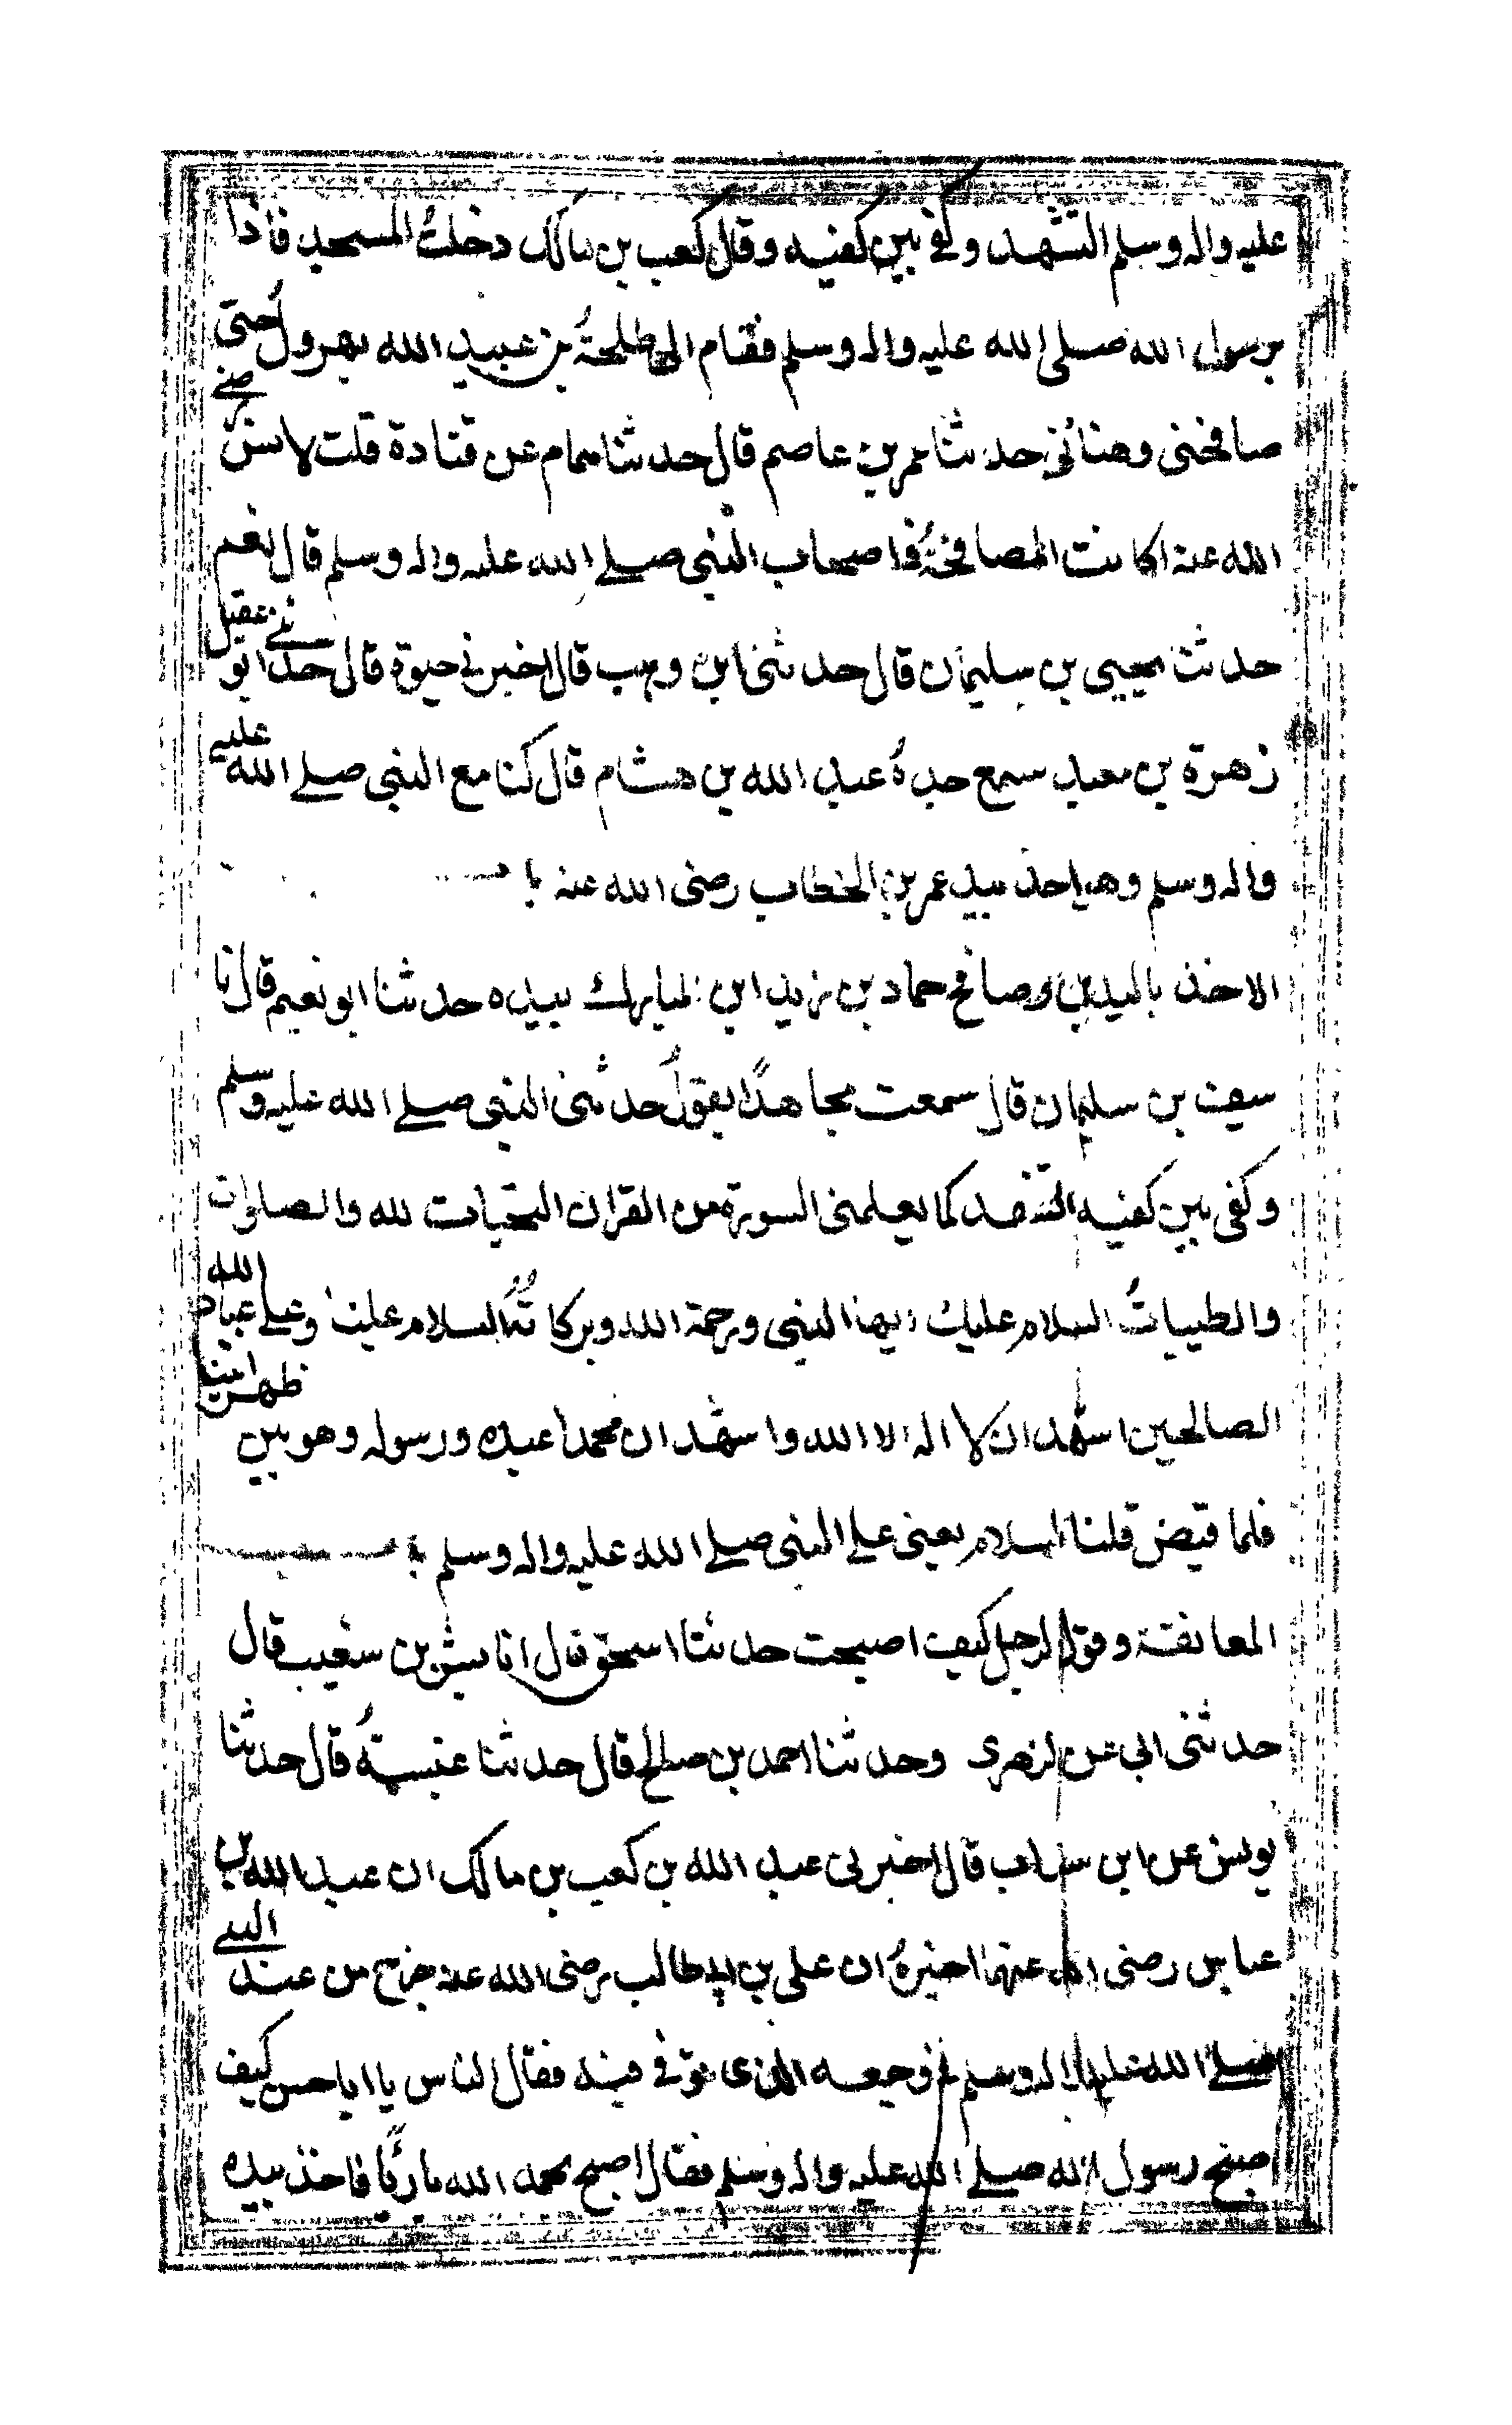 عليه واله وسلم التشهد وكفي بين كفيه وقال كعب بن مالك دخلت المسجد فاذا
برسول الله صلى الله عليه واله وسلم فقام الي طلحة بن عبيد الله يهرول حتى
صافحني وهناني حدثنا عمر بن عاصم قال حدثنا همام عن قتادة قلت لانس رضي
الله عنه اكانت المصافحة في اصحاب النبي صلے الله عليه واله وسلم قال نعم
حدثنا يحيى بن سليمان قال حدثني ابن وهب قال اخبرني حيوة قال حدثني ابو عقيل
زهرة بن معبد سمع جده عبد الله بن هشام قال كنا مع النبي صلے الله عليه
واله وسلم وهو اخذ بيد عمر بن الخطاب رضى الله عنه با
الاخذ باليدين وصافح حماد بن زيد ابن المبارك بيده حدثنا ابو نعيم قال نا
سيف بن سليمان قال سمعت مجاهدًا يقول حدثنى النبي صلے الله عليه وسلم
وكفى بين كفيه التشهد كما يعلمنى السورة من القران التحيات لله والصلوات
والطيبات السلام عليك ايها النبي ورحمة الله وبركاته السلام علينا وعلے عباد الله
الصالحين اشهد ان لا اله الا الله واشهد ان محمدا عبده ورسوله وهو بين ظهرانينا
فلما قبض قلنا السلام يعنى علے النبي صلے الله عليه واله وسلم
المعانقة وقول الرجل كيف اصبحت حدثنا اسحق قال انا بشر بن شعيب قال
حدثنى ابي عن الزهري وحدثنا احمد بن صالح قال حدثنا عنبسة قال حدثنا
يونس عن ابن شهاب قال اخبرنى عبد الله بن كعب بن مالك ان عبد الله بن
عباس رضى الله عنهما اخبره ان علي بن ابي طالب رضى الله عنه خرج من عند النبي
صلے الله عليه واله وسلم في وجعه الذى توفي فيه فقال الناس يا ابا حسن كيف
اصبح رسول الله صلے الله عليه واله وسلم فقال اصبح بحمد الله بارئا فاخذ بيده